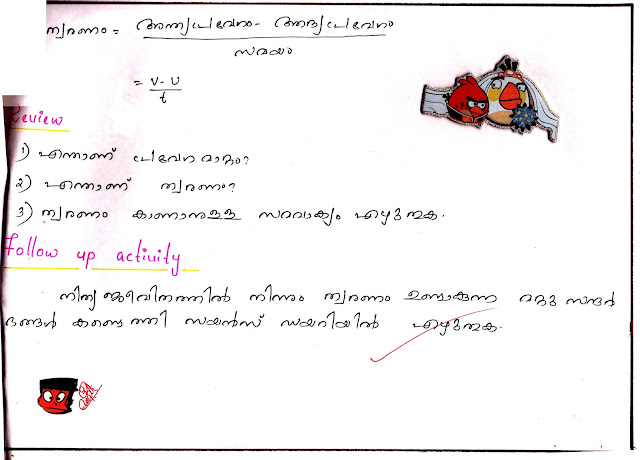 ത്വരണം = അന്ത്യപ്രവേഗം - ആദ്യപ്രവേഗം
സമയം
= v - u
t
Review
1) എന്താണ് പ്രവേഗമാറ്റം?
2) എന്താണ് ത്വരണം?
3) ത്വരണം കാണാനുള്ള സമവാക്യം എഴുതുക.
Follow up activity
നിത്യജീവിതത്തിൽ നിന്നും ത്വരണം ഉണ്ടാകുന്ന മറ്റു സന്ദർ
ഭങ്ങൾ കണ്ടെത്തി സയൻസ് ഡയറിയിൽ എഴുതുക.